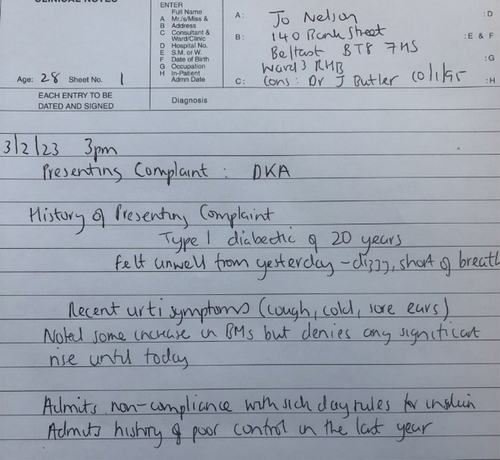 CLINICAL NOTES
ENTER
Full Name
A Mr./Miss &
B Address
C Consultant &
Ward/Clinic
D Hospital No.
E S.M. or W.
F Date of Birth
G Occupation
H In-Patient
Admn Date
Age: 28 Sheet No. 1
EACH ENTRY TO BE
DATED AND SIGNED
Diagnosis
A: Jo Nelson :D
B: 140 Bank Street :E & F
Belfast BT8 7HS
Ward 3 RHB :G
C: Cons: Dr J Butler 10/1/95 :H
3/2/23 3pm
Presenting Complaint : DKA
History of Presenting Complaint
Type 1 diabetic of 20 years
felt unwell from yesterday - dizzy, short of breath
Recent urti symptoms (cough, cold, sore ears)
Noted some increase in BMs but denies any significant
rise until today
Admits non-compliance with sick day rules for insulin
Admits history of poor control in the last year